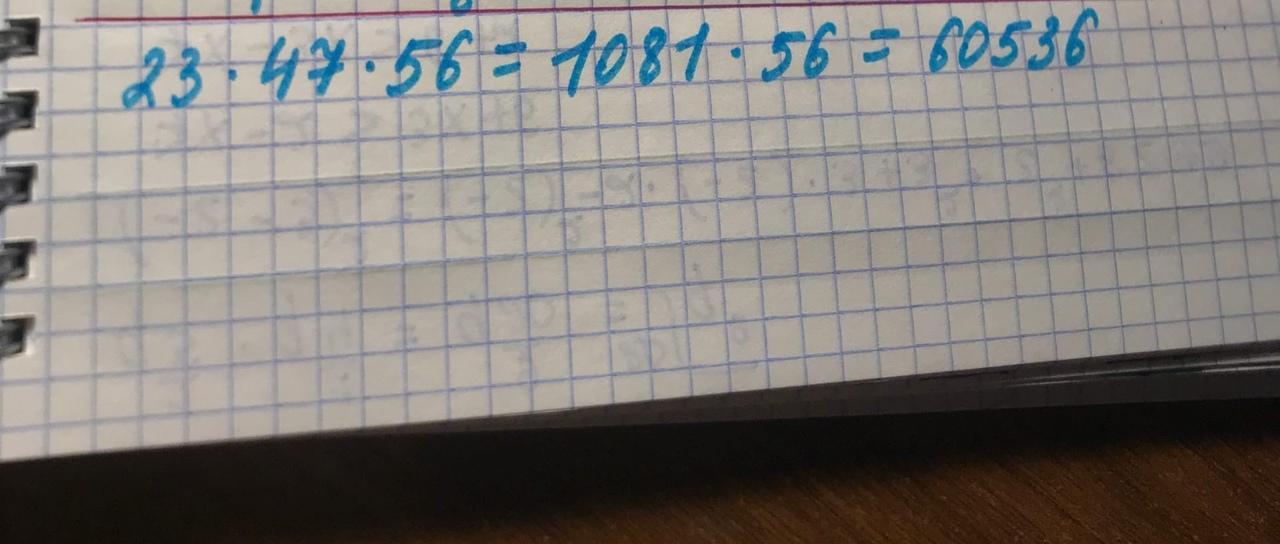 23 · 47 · 56 = 1081 · 56 = 60536